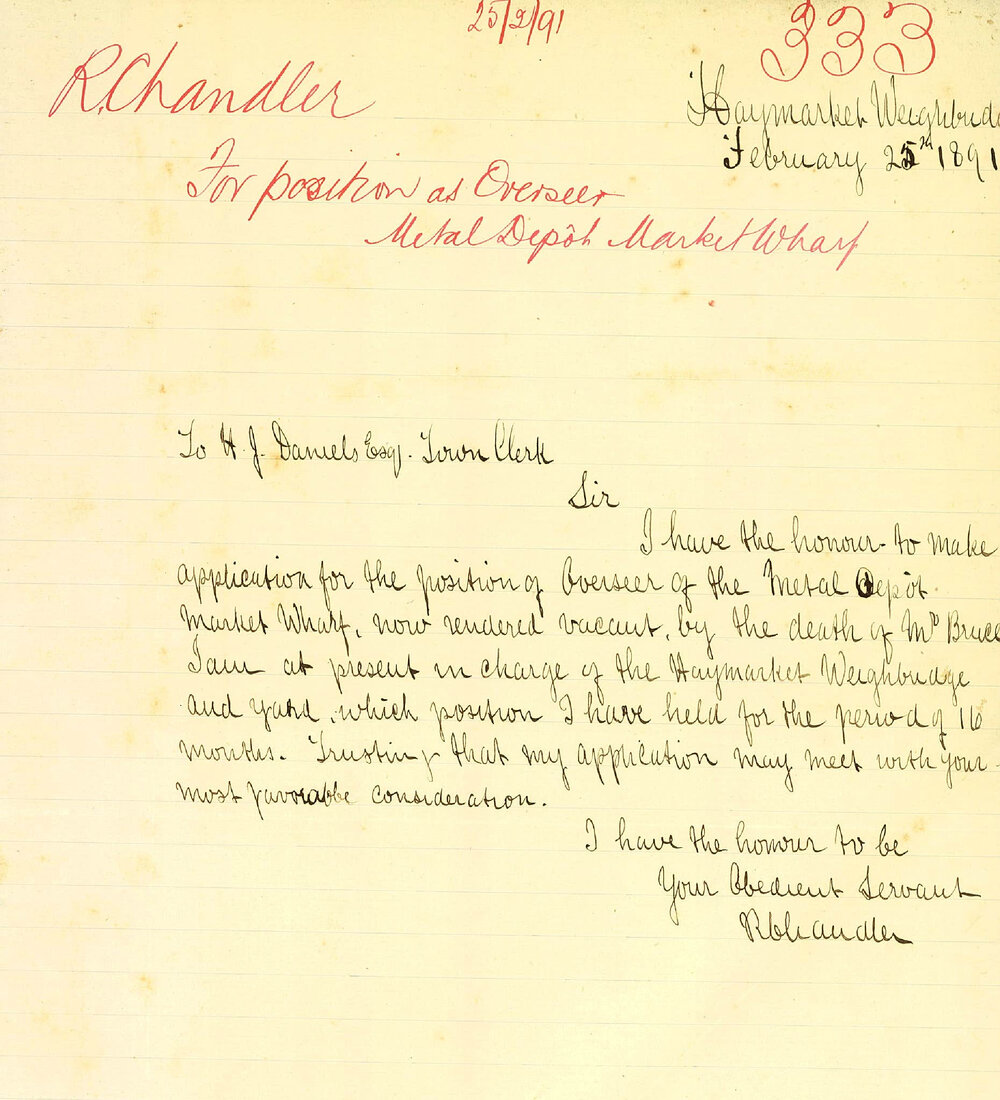 25/2/91
333
R. Chandler
Haymarket Weighbridge
February 25th 1891
For position as Overseer
Metal Depôt Market Wharf
To H. J. Daniels Esq. Town Clerk
Sir
I have the honour to make
application for the position of Overseer of the Metal Depôt
Market Wharf, now rendered vacant, by the death of Mr Bruce
I am at present in charge of the Haymarket Weighbridge
and yard, which position I have held for the period of 16
months. Trusting that my application may meet with your
most favorable consideration.
I have the honour to be
Your Obedient Servant
R Chandler